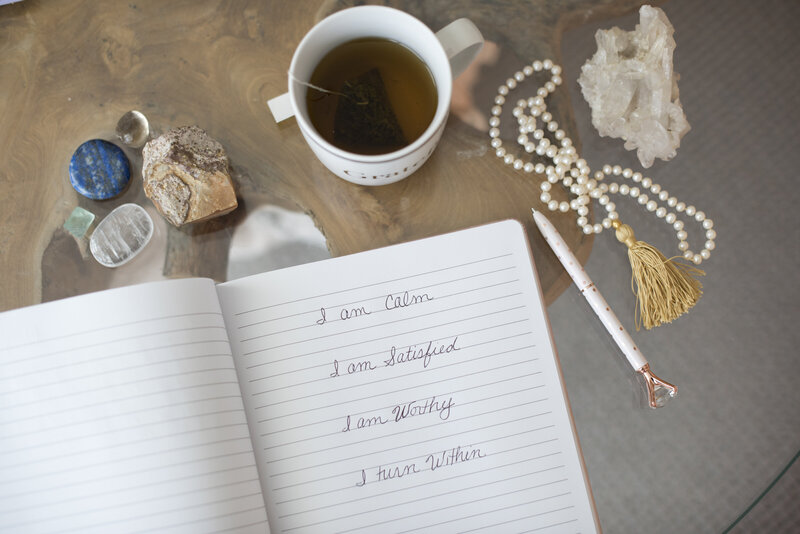 I am Calm
I am Satisfied
I am Worthy
I turn Within